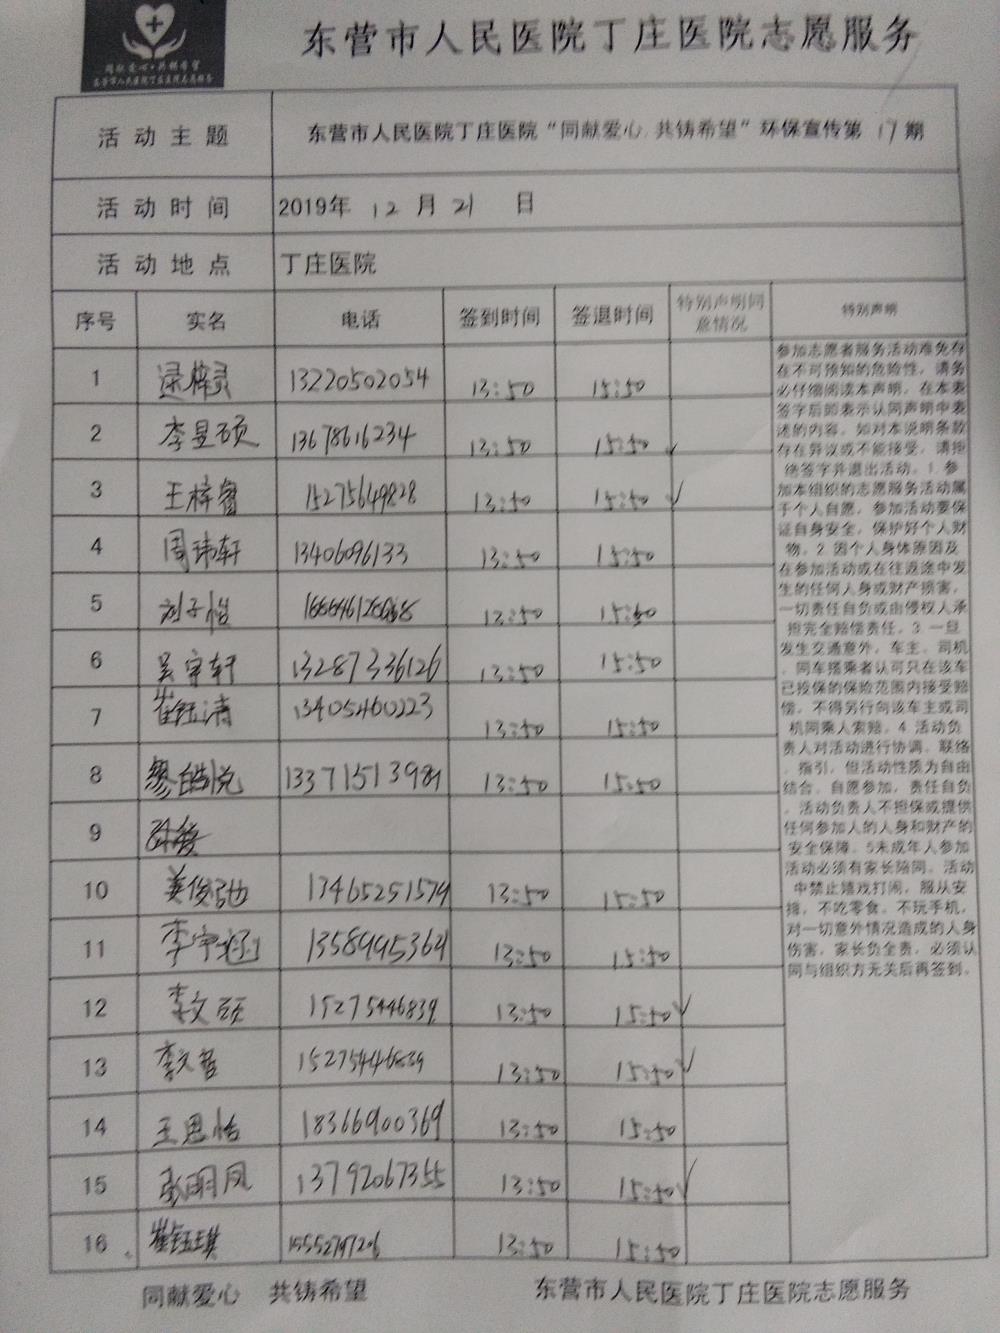 同献爱心·共铸希望
东营市人民医院丁庄医院志愿服务
东营市人民医院丁庄医院志愿服务
活动主题 东营市人民医院丁庄医院“同献爱心,共铸希望”环保宣传第17期
活动时间 2019年 12 月 21 日
活动地点 丁庄医院
序号 实名 电话 签到时间 签退时间 特别声明同意情况 特别声明
1 13220502054 13:50 15:50
2 李昱硕 13678616234 13:50 15:50 ✓
3 王梓睿 15275649828 13:50 15:50 ✓
4 周玮轩 13406096133 13:50 15:50
5 刘子怡 13:50 15:50
6 吴宇轩 13287336126 13:50 15:50
7 崔钰清 13405460223 13:50 15:50
8 廖皓悦 13371513981 13:50 15:50
9
10 姜俊驰 13465251579 13:50 15:50
11 李宇涵 13589953621 13:50 15:50
12 李文硕 15275446839 13:50 15:50 ✓
13 李文哲 15275446839 13:50 15:50 ✓
14 王思怡 18366900369 13:50 15:50
15 张明凤 13792067355 13:50 15:50 ✓
16 崔钰琪 15552797206 13:50 15:50
参加志愿者服务活动难免存
在不可预知的危险性，请务
必仔细阅读本声明，在本表
签字后即表示认同声明中表
述的内容。如对本说明条款
存在异议或不能接受，请拒
绝签字并退出活动。1.参
加本组织的志愿服务活动属
于个人自愿，参加活动要保
证自身安全，保护好个人财
物。2.因个人身体原因及
在参加活动或在往返途中发
生的任何人身或财产损害，
一切责任自负或由侵权人承
担完全赔偿责任。3.一旦
发生交通意外，车主、司机
、同车搭乘者认可只在该车
已投保的保险范围内接受赔
偿，不得另行向该车主或司
机同乘人索赔。4.活动负
责人对活动进行协调、联络
、指引，但活动性质为自由
结合、自愿参加，责任自负
，活动负责人不担保或提供
任何参加人的人身和财产的
安全保障。5未成年人参加
活动必须有家长陪同，活动
中禁止嬉戏打闹，服从安
排，不吃零食，不玩手机，
对一切意外情况造成的人身
伤害，家长负全责，必须认
同与组织方无关后再签到。
同献爱心 共铸希望 东营市人民医院丁庄医院志愿服务